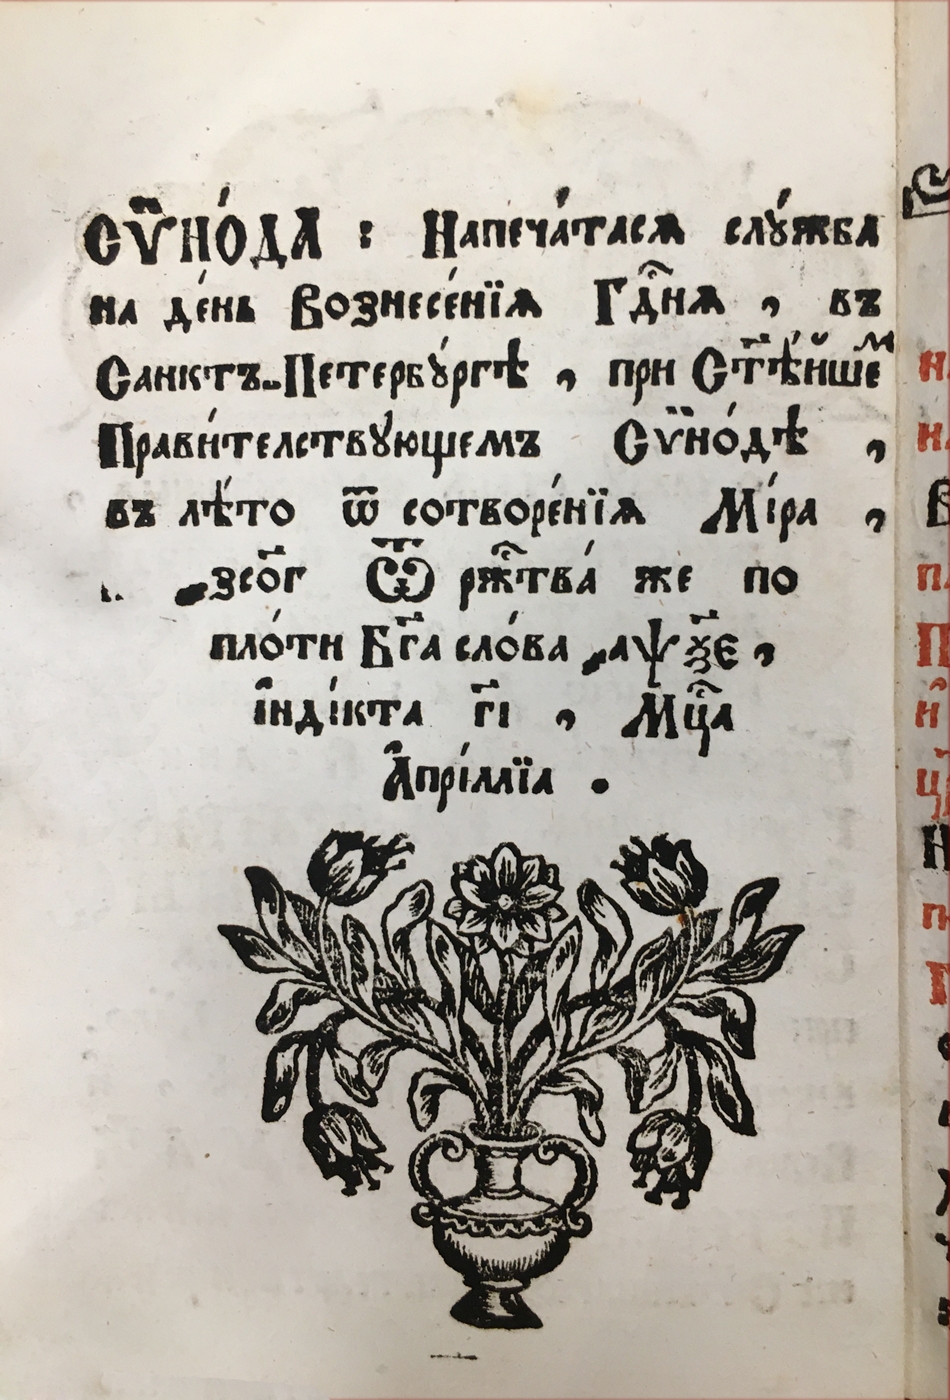 СѶНО́ДА : Напеча́тасѧ слꙋ́жба
на де́нь Вознесе́нїѧ Гдⷭ҇нѧ , въ
Санктъ-Петербꙋ́ргѣ , при Ст҃ѣ́йшеⷨ
Прави́телствꙋющемъ Сѷно́дѣ ,
въ лѣ́то ѿ сотворе́нїѧ Мі́ра ,
҂зсо҃г Ѿ ржⷭ҇тва́ же по
пло́ти Бг҃а сло́ва ҂аѱѯ҃е ,
і҆ндікта г҃і , Мцⷭ҇а
А҆прі́ллїа .